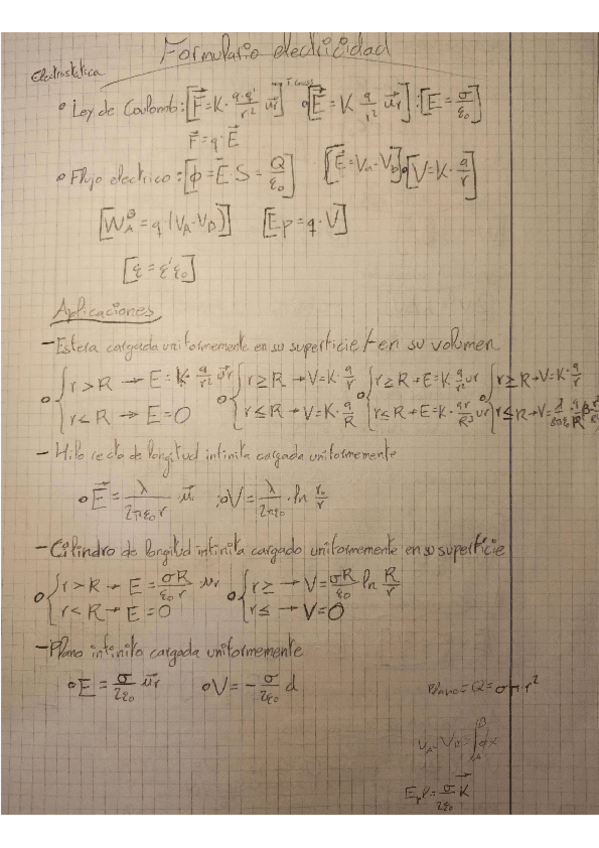 Formulario electricidad
Electrostática
• Ley de Coulomb: [F⃗ = K · q·q'/r² u⃗r] [E⃗ = K q/r² u⃗r] : [E = σ/ε₀]
F⃗ = q · E⃗
• Flujo electrico: [ϕ = E⃗ · S = Q/ε₀] [E⃗ = Va - Vb] [V = K · q/r]
[W_A^B = q · (VA - VB)] [Ep = q · V]
[ε = ε' ε₀]
Aplicaciones
- Esfera cargada uniformemente en su superficie / - en su volumen
{ r > R → E = K · q/r² u⃗r { r ≥ R → V = K · q/r { r ≥ R → E = K · q/r² ur { r ≥ R → V = K · q/r
{ r < R → E = 0 { r ≤ R → V = K · q/R { r ≤ R → E = K · qr/R³ ur { r ≤ R → V =
- Hilo recto de longitud infinita cargada uniformemente
E⃗ = λ/2πε₀r · u⃗ ; V = λ/2πε₀ · ln r₀/r
- Cilindro de longitud infinita cargado uniformemente en su superficie
{ r > R → E = σR/ε₀ r ur { r ≥ → V = σR/ε₀ ln R/r
{ r < R → E = 0 { r ≤ → V = 0
- Plano infinito cargada uniformemente
E = σ/2ε₀ u⃗r V = - σ/2ε₀ d
Plano = Q = σπ · r²
VA - VB = ∫_A^B dx
σ/2ε₀ K⃗